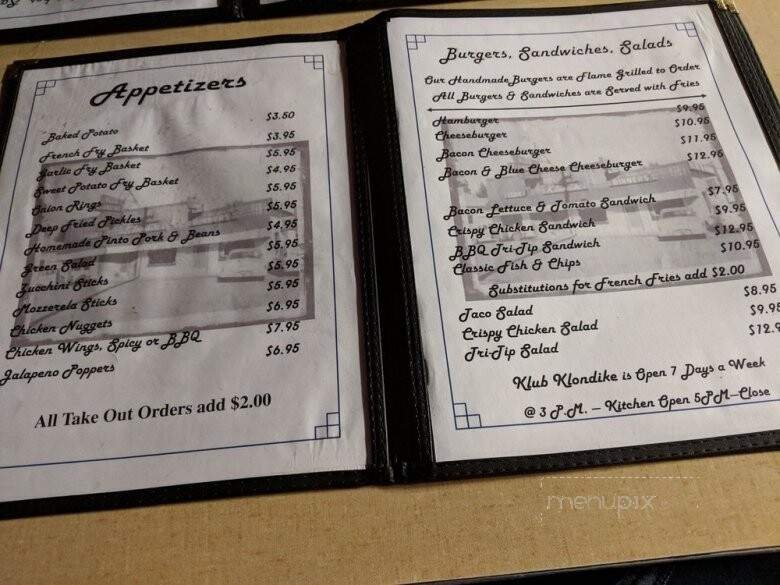 Appetizers
Baked Potato $3.50
French Fry Basket $3.95
Garlic Fry Basket $5.95
Sweet Potato Fry Basket $4.95
Onion Rings $5.95
Deep Fried Pickles $5.95
Homemade Pinto Pork & Beans $4.95
Green Salad $5.95
Zucchini Sticks $5.95
Mozzerela Sticks $5.95
Chicken Nuggets $6.95
Chicken Wings, Spicy or BBQ $7.95
Jalapeno Poppers $6.95
All Take Out Orders add $2.00
Burgers, Sandwiches, Salads
Our Handmade Burgers are Flame Grilled to Order
All Burgers & Sandwiches are Served with Fries
Hamburger $9.95
Cheeseburger $10.95
Bacon Cheeseburger $11.95
Bacon & Blue Cheese Cheeseburger $12.95
Bacon Lettuce & Tomato Sandwich $7.95
Crispy Chicken Sandwich $9.95
BBQ Tri-Tip Sandwich $12.95
Classic Fish & Chips $10.95
Substitutions for French Fries add $2.00
Taco Salad $8.95
Crispy Chicken Salad $9.95
Tri-Tip Salad $12.9
Klub Klondike is Open 7 Days a Week
@ 3 P.M. – Kitchen Open 5PM–Close
menupix